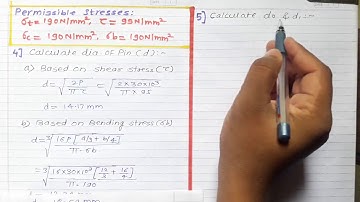 Permissible Stresses:
σt = 190N/mm², τ = 95N/mm²
σc = 190N/mm², σb = 190N/mm²
4] Calculate dia of Pin (d) :-
a) Based on shear stress (τ)
d = √(2P / π τ) = √(2×30×10³ / π × 95)
d = 14.17 mm
b) Based on Bending stress (σb)
d = ³√(16P [a/3 + b/4] / π · σb)
= ³√(16×30×10³ [12/3 + 16/4] / π · 190)
5] Calculate do & d1 :-